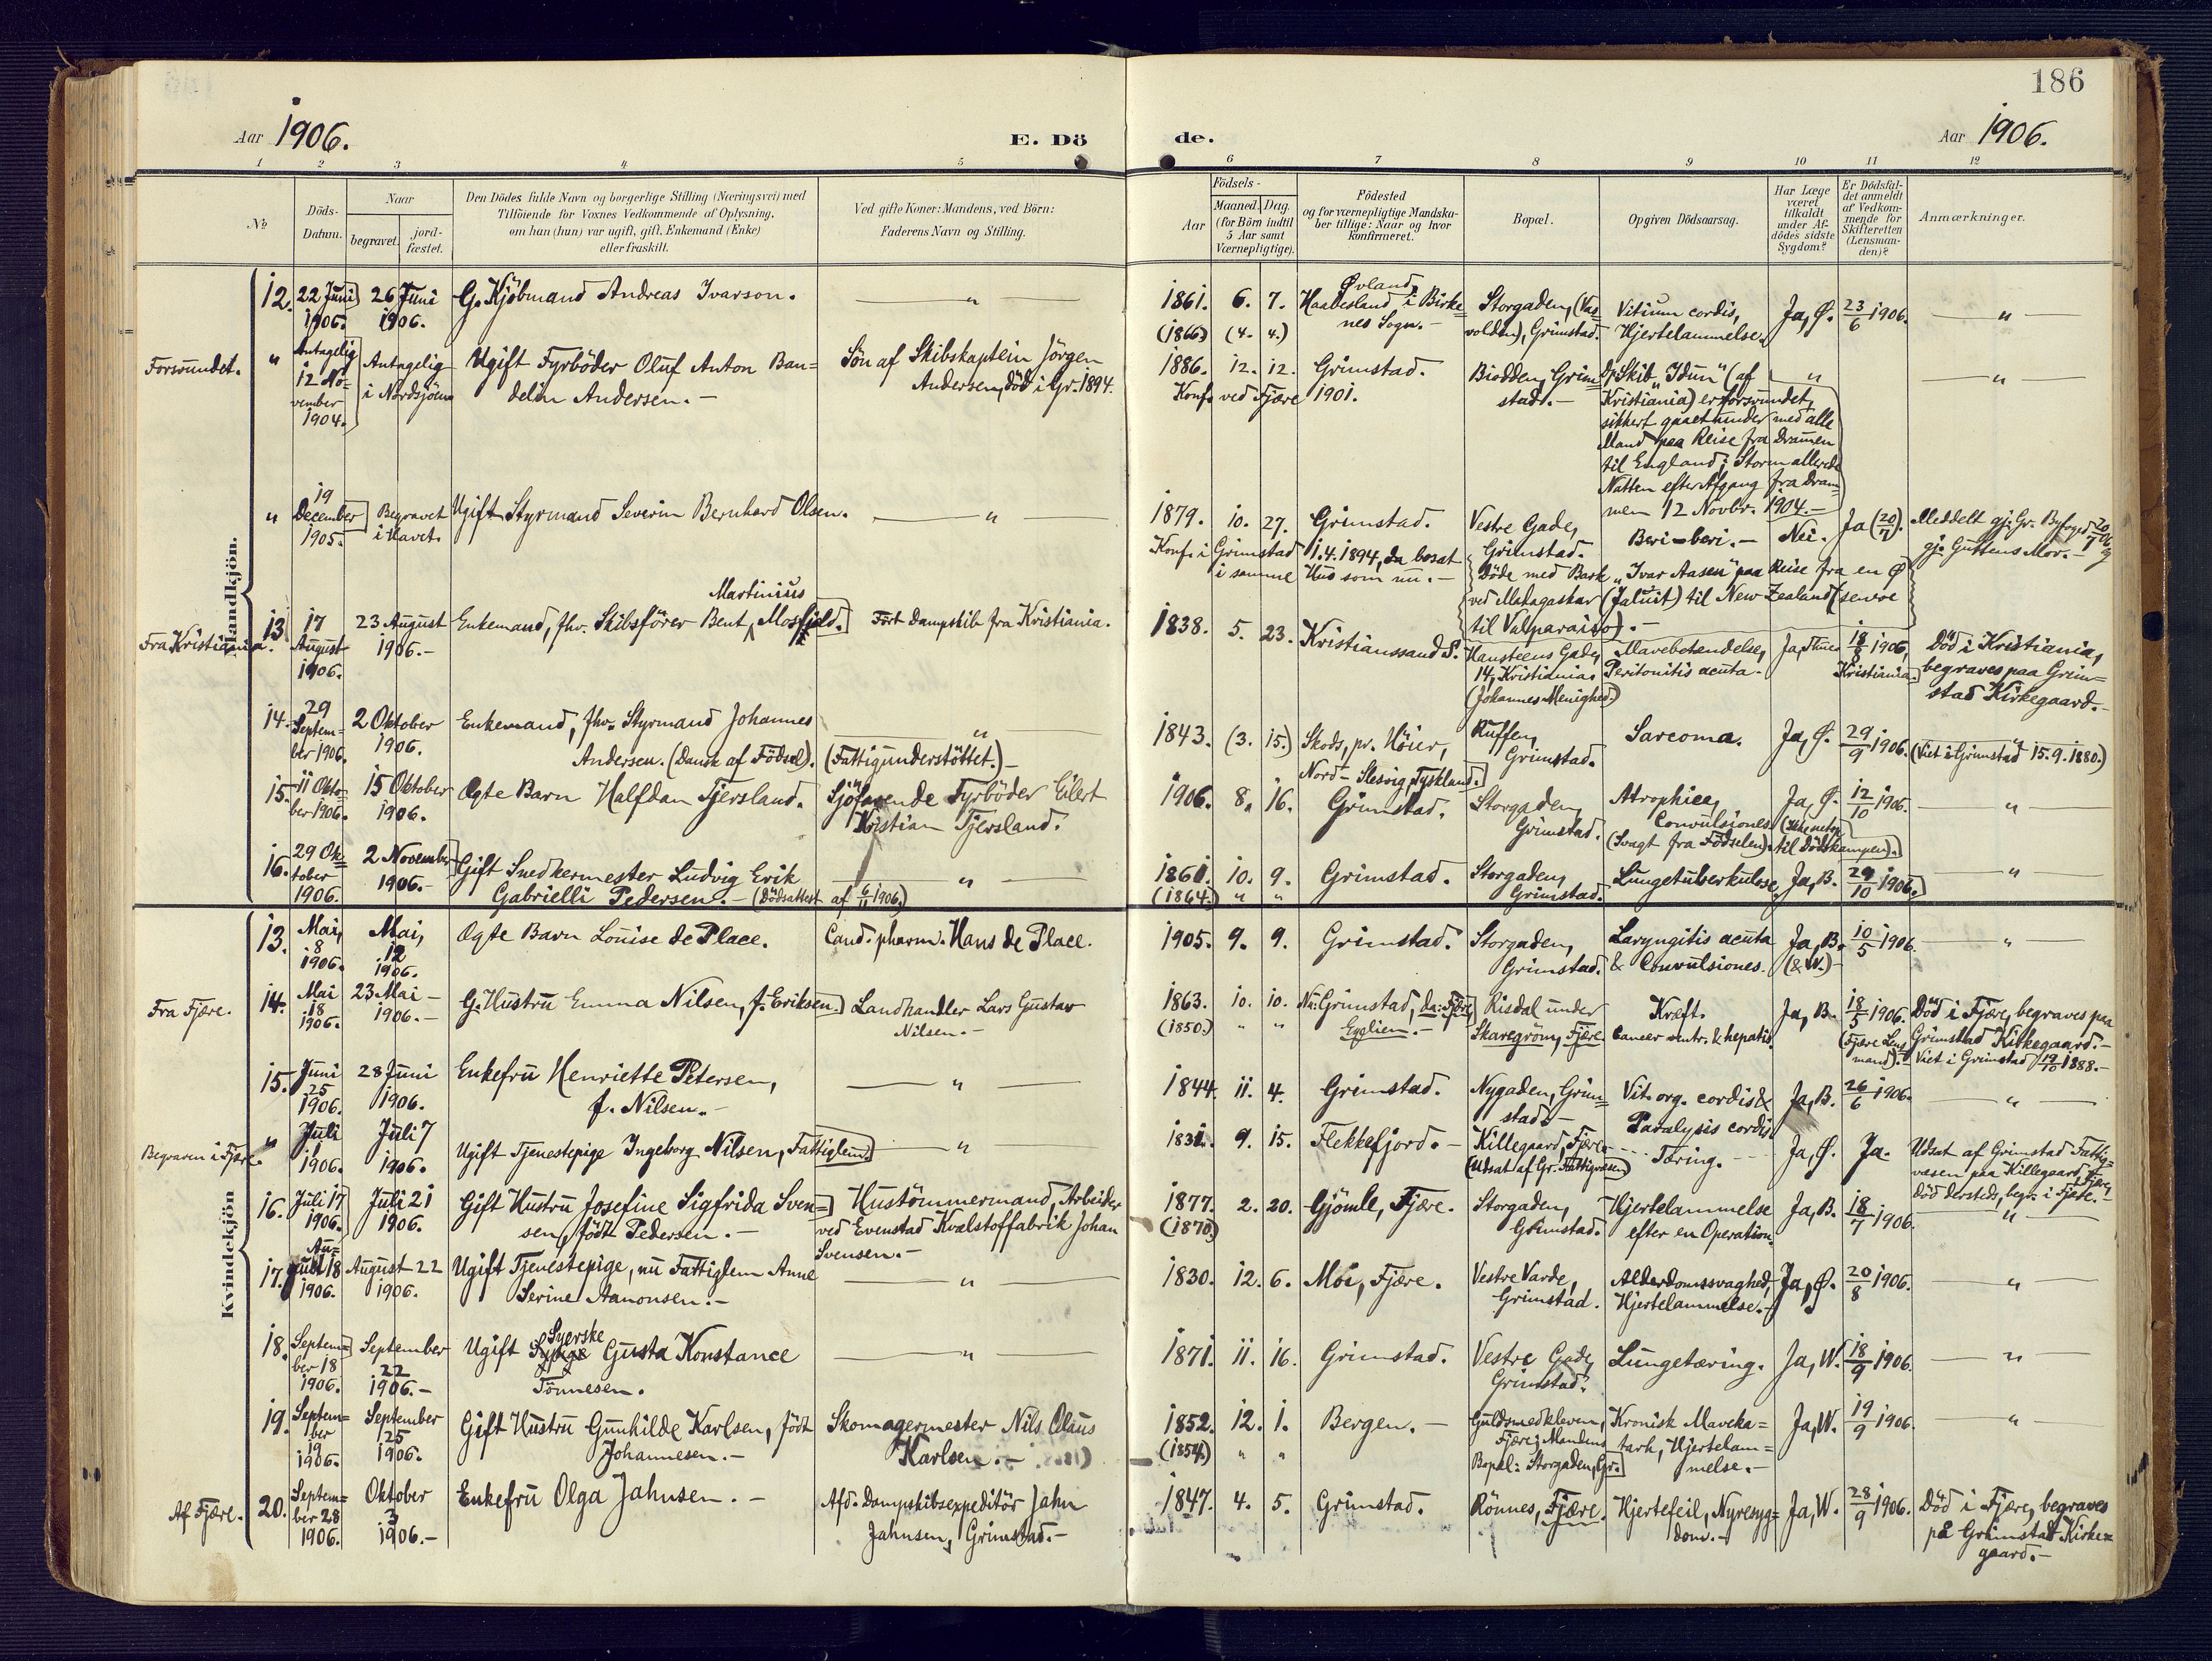 186
Aar 1906.
E. Dö
de.
Aar 1906.
1 2 3 4 5 6 7 8 9 10 11 12
№
Döds-
Datum.
Naar
begravet.
jord-
fæstet.
Den Dödes fulde Navn og borgerlige Stilling (Næringsvei) med
Tilföiende for Voxnes Vedkommende af Oplysning,
om han (hun) var ugift, gift, Enkemand (Enke)
eller fraskilt.
Ved gifte Koner: Mandens, ved Börn:
Faderens Navn og Stilling.
Födsels-
Aar
Maaned.
Dag.
(for Börn indtil
5 Aar samt
Værnepligtige).
Födested
og for værnepligtige Mandska-
ber tillige: Naar og hvor
konfirmeret.
Bopæl.
Opgiven Dödsaarsag.
Har Læge
været
tilkaldt
under Af-
dödes sidste
Sygdom?
Er Dödsfal-
det anmeldt
af Vedkom-
mende for
Skifteretten
(Lensman-
den)?
Anmærkninger.
Mandkjön.
12.
22 Juni
1906.
26 Juni
1906.
G. Kjöbmand Andreas Ivarson.
"
1861. 6. 7.
(1866) (4. 4.)
Øvland,
Haabesland i Birke=
nes Sogn.-
Storgaden, (Vas=
volden), Grimstad.
Vitium cordis,
Hjertelammelse.
Ja, Ø.
23/6 1906.
"
Forsvundet.
"
Antagelig
12 No=
vember
1904.
Antagelig
i Nordsjöen
Ugift Fyrböder Oluf Anton Ban=
delin Andersen.-
Sön af Skibskaptein Jörgen
Andersen, död i Gr. 1894.
1886. 12. 12.
Grimstad.
Konf. ved Fjære 1901.
Biodden, Grim=
stad.-
D/Skib "Idun" (af
Kristiania) er forsvundet,
sikkert gaaet under med alle
Mand paa Reise fra Drammen
til England i Storm allerede
Natten efter Afgang fra Dram=
men 12 Novbr. 1904.-
"
"
"
19
December
1905.
Begravet
i Havet.
Ugift Styrmand Severin Bernhard Olsen.
"
1879. 10. 27.
Grimstad.
Konf. i Grimstad 1.4.1894, da bosat
i samme Hus som nu.-
Vestre Gade,
Grimstad.
Beri-beri.-
Nei.
Ja (20/7).
Meddelt gj. Gr. Byfoged 20/7 06
gj. Guttens Mor.-
Döde med Bark "Ivar Aasen" paa Reise fra en Ø
ved Madagaskar (Jaluit) til New Zealand (senere
til Valparaiso).-
Fra Kristiania.
13.
17
August
1906.
23 August
1906.-
Martinius
Enkemand, fhv. Skibsförer Bent Mosfjeld.
Fört Dampskib fra Kristiania.
1838. 5. 23.
Kristianssand S.
Hansteens Gade,
14, Kristiania.
(Johannes Menighed)
Mavebetendelse,
Peritonitis acuta.
Ja, Thues
18/8 1906,
Kristiania.
Död i Kristiania,
begraves paa Grim=
stad Kirkegaard.-
14.
29
Septem=
ber 1906.
2 Oktober
1906.
Enkemand, fhv. Styrmand Johannes
Andersen. (Dansk af Födsel).
"
(Fattigunderstöttet.)-
1843. (3. 15.)
Skods, pr. Höier,
Nord-Slesvig, Tyskland.
Ruffen,
Grimstad.
Sarcoma.
Ja, Ø.
29/9 1906.
"
(Viet i Grimstad 15.9.1880.)
15.
11 Okto=
ber 1906.
15 Oktober
1906.
Ægte Barn Halfdan Tjersland.
Sjöfarende Fyrböder Eilert
Kristian Tjersland.
1906. 8. 16.
Grimstad.
Storgaden,
Grimstad.
Atrophica,
Convulsiones.
(Svagt fra Födselen).
Ja, Ø.
til Dödskampen).
12/10 1906.
"
16.
29 Ok=
tober
1906.
2 November
1906.-
Gift Snedkermester Ludvig Erik
Gabrielli Pedersen.- (Dödsattest af 6/11 1906.)
"
1861. 10. 9.
(1864.) " "
Grimstad.
Storgaden,
Grimstad.
Lungetuberkulose,
Ja, B.
29/10 1906.
"
Kvindekjön
13.
Mai,
8
1906.
Mai,
12
1906.
Ægte Barn Louise de Place.
Cand. pharm. Hans de Place.
1905. 9. 9.
Grimstad.
Storgaden,
Grimstad.
Laryngitis acuta
& Convulsiones.
Ja, B.
(& W.)-
10/5 1906.
"
Fra Fjære.
14.
Mai
18
1906.
23 Mai-
1906.-
G. Hustru Emma Nilsen, f. Eriksen.
Landhandler Lars Gustav
Nilsen.-
1863. 10. 10.
(1850.) " "
Nu: Grimstad, da: Fjære
Egelien.-
Risdal under
Skaregröm, Fjære.
Kræft.
Cancer ventr. & hepatis.
Ja, B.
18/5 1906.
(Fjære Lens=
mand).-
Död i Fjære, begraves paa
Grimstad Kirkegaard.-
Viet i Grimstad 19/10 1888.-
15.
Juni
25
1906.
28 Juni
1906.
Enkefru Henriette Petersen,
f. Nilsen.-
"
1844. 11. 4.
Grimstad.
Nygaden, Grim=
stad.-
Vit. org. cordis &
Paralysis cordis.
Ja, B.
26/6 1906.
"
Begraven i Fjære.
"
Juli
1906.
Juli 7
1906.
Ugift Tjenestepige Ingeborg Nilsen, Fattiglem.
"
1831. 9. 15.
Flekkefjord.-
Killegaard, Fjære
(Udsat af Gr. Fattigvæsen)
Tæring.
Ja, Ø.
Ja.
Udsat af Grimstad Fattig=
væsen paa Killegaard, Fjære,
död dersteds, begr. i Fjære.-
16.
Juli 17
1906.
Juli 21
1906.
Gift Hustru Josefine Sigfrida Sven=
sen, födt Pedersen.-
Hustömmermand, Arbeider
ved Evenstad Kvælstoffabrik Johan
Svensen.-
1877. 2. 20.
(1870)
Gjömle, Fjære.
Storgaden,
Grimstad.
Hjertelammelse
efter en Operation.
Ja, B.
18/7 1906.
"
17.
Au=
gust 18
1906.
August 22
1906.
Ugift Tjenestepige, nu Fattiglem Anne
Serine Aanonsen.-
"
1830. 12. 6.
Moi, Fjære.
Vestre Varde,
Grimstad.
Alderdomssvaghed,
Hjertelammelse.-
Ja, Ø.
20/8 1906.
"
18.
Septem=
ber 18
1906.
September
22
1906.-
Syerske
Ugift Gusta Konstance
Tönnesen.
"
1871. 11. 16.
Grimstad.
Vestre Gade,
Grimstad.
Lungetæring.
Ja, W.
18/9 1906.
"
19.
Septem=
ber
19
1906.
September
25
1906.
Gift Hustru Gunhilde Karlsen, födt
Johannesen.-
Skomagermester Nils Olaus
Karlsen.-
1852. 12. 1.
(1854.) " "
Bergen.-
Guldsmedkleven,
Fjære; Mandens
Bopæl: Storgaden, Gr.
Kronisk Maveka=
tarh, Hjertelam=
melse.-
Ja, W.
19/9 1906.
"
Af Fjære.
20.
Septem=
ber 28
1906.
Oktober
3
1906.-
Enkefru Olga Jahnsen.-
Afd. Dampskibsexpeditör Jahn
Jahnsen, Grimstad.-
1847. 4. 5.
Grimstad.
Rönnes, Fjære.
Hjertefeil, Nyresyg=
dom.-
Ja, W.
28/9 1906.
Död i Fjære, begraves
på Grimstad Kirke=
gaard.-